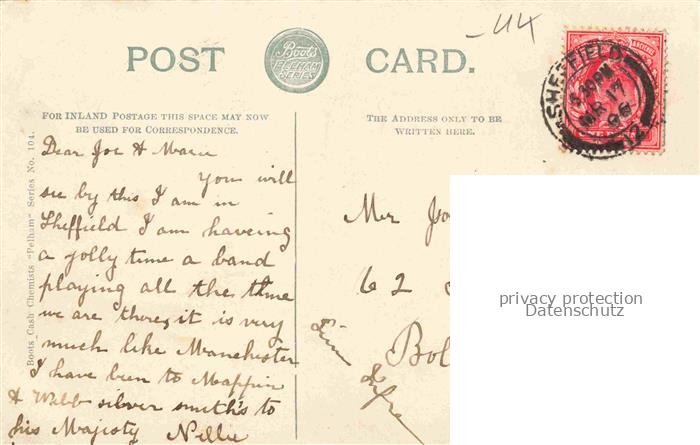 -44
POST CARD.
Boots
PELHAM
SERIES
FOR INLAND POSTAGE THIS SPACE MAY NOW
BE USED FOR CORRESPONDENCE.
THE ADDRESS ONLY TO BE
WRITTEN HERE.
SHEFFIELD
MR 17
Boots Cash Chemists "Pelham" Series No. 104.
Dear Joe &
You will
see by this I am in
Sheffield I am haveing
a jolly time a band
playing all the time
we are there, it is very
much like Manchester
I have been to Mappin
& Webb silver smith's to
his Majesty Nellie
Mr
62
Bol
privacy protection
Datenschutz